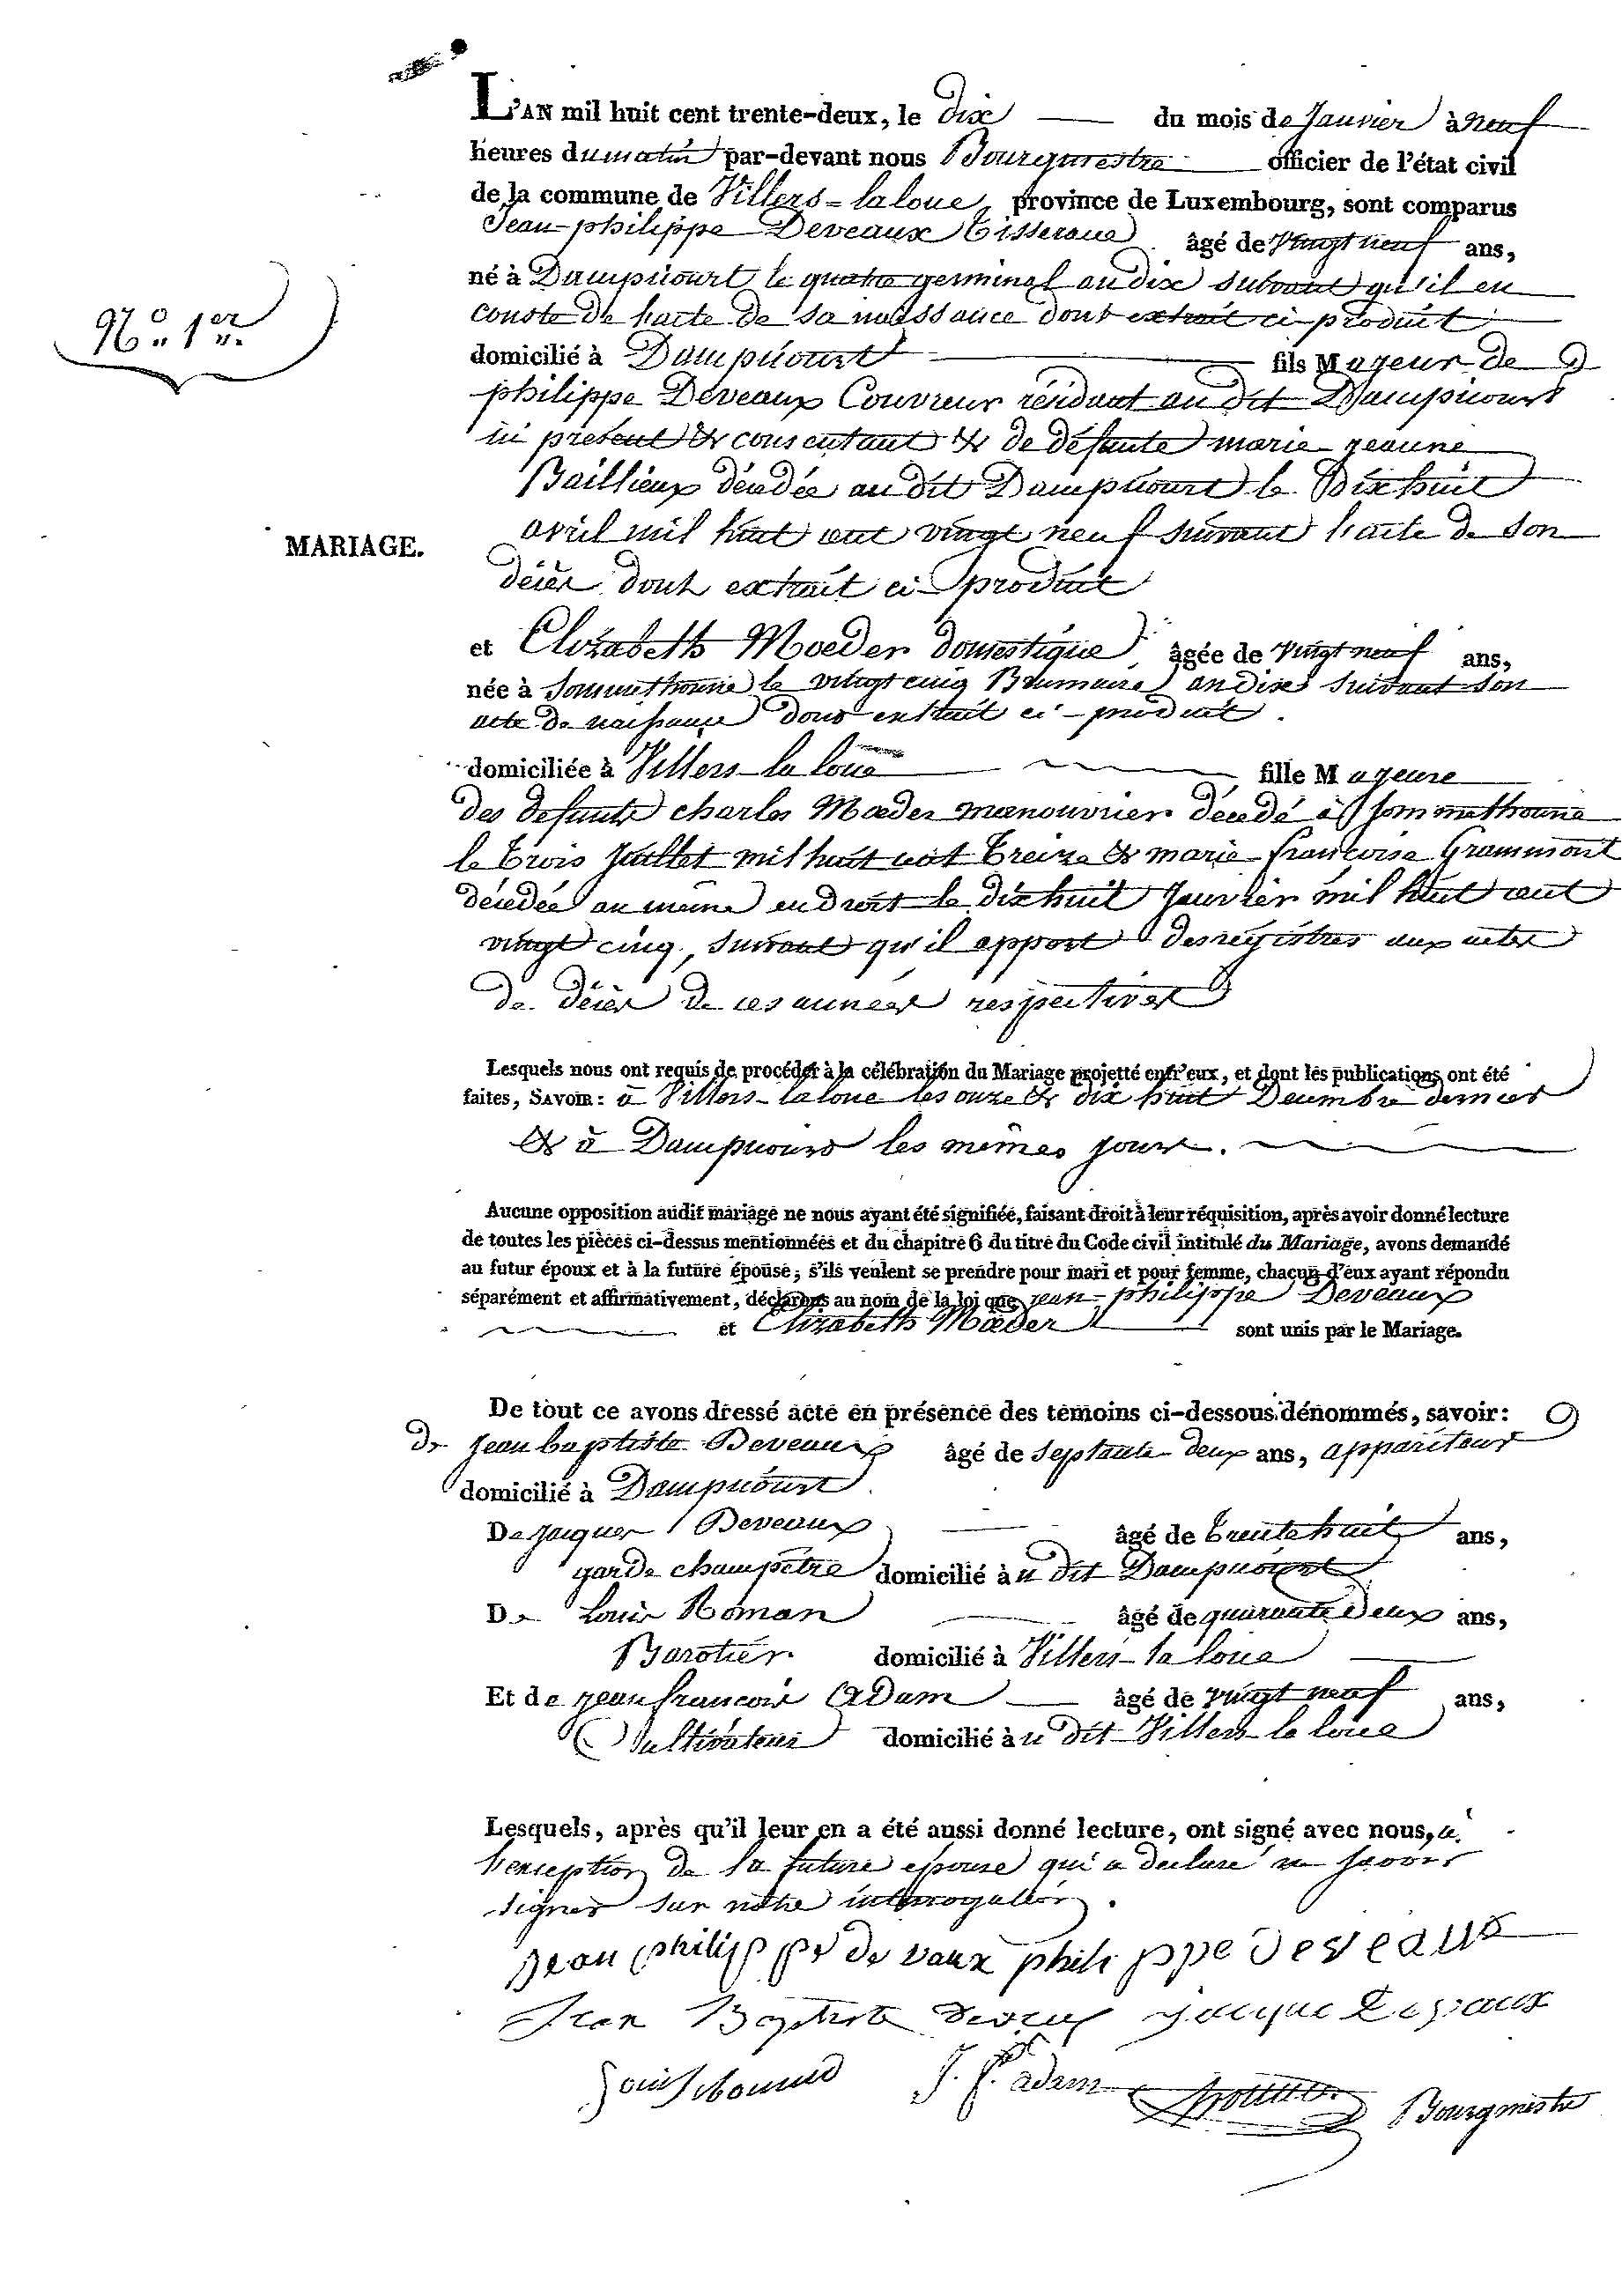 L'AN mil huit cent trente-deux, le dix du mois de Janvier à neuf
heures du matin par-devant nous Bourgmestre officier de l'état civil
de la commune de Villers-la loue, province de Luxembourg, sont comparus
Jean-philippe Deveaux Tisserand âgé de vingt neuf ans,
né à Dampicourt le quatre germinal an dix suivant qu'il en
conste de l'acte de sa naissance dont extrait ci-produit
N.o 1er
domicilié à Dampicourt fils Majeur de
philippe Deveaux Couvreur résidant au dit Dampicourt
ici présent & consentant & de défunte marie jeanne
Baillieux décédée au dit Dampicourt le Dix huit
avril mil huit cent vingt neuf suivant l'acte de son
MARIAGE.
décès dont extrait ci-produit
et Elizabeth Mæder domestique âgée de vingt neuf ans,
née à Sommethonne le vingt cinq Brumaire an dix suivant son
acte de naissance dont extrait ci-produit.
domiciliée à Villers-la loue fille Majeure
des défunts charles Mæder manouvrier décédé à Sommethonne
le trois Juillet mil huit cent treize & marie-françoise Grammont
décédée au même endroit le dix huit Janvier mil huit cent
vingt cinq, suivant qu'il appert des régistres aux actes
de décès de ces années respectives
Lesquels nous ont requis de procéder à la célébration du Mariage projetté entr'eux, et dont les publications ont été
faites, SAVOIR: à Villers-la loue les onze & dix huit Decembre dernier
& à Dampicourt les mêmes jours.
Aucune opposition audit mariage ne nous ayant été signifiée, faisant droit à leur réquisition, après avoir donné lecture
de toutes les pièces ci-dessus mentionnées et du chapitre 6 du titre du Code civil intitulé du Mariage, avons demandé
au futur époux et à la future épouse; s'ils veulent se prendre pour mari et pour femme, chacun d'eux ayant répondu
séparément et affirmativement, déclarons au nom de la loi que jean-philippe Deveaux
et Elizabeth Mæder sont unis par le Mariage.
De tout ce avons dressé acte en présence des témoins ci-dessous dénommés, savoir:
de Jean baptiste Deveaux âgé de septante deux ans, appariteur
domicilié à Dampicourt
De jacques Deveaux âgé de trente huit ans,
garde champêtre domicilié à u dit Dampicourt
De Louis Roman âgé de quarante deux ans,
domicilié à Villers-la loue
Et de jean françois Adam âgé de vingt neuf ans,
Cultivateur domicilié à u dit Villers-la loue
Lesquels, après qu'il leur en a été aussi donné lecture, ont signé avec nous, à
l'exception de la future épouse qui a declaré ne savoir
signer sur notre interrogation.
jean philippe de vaux philippe deveaux
Jean Baptiste jacque
J. f. adam Bourgmestre